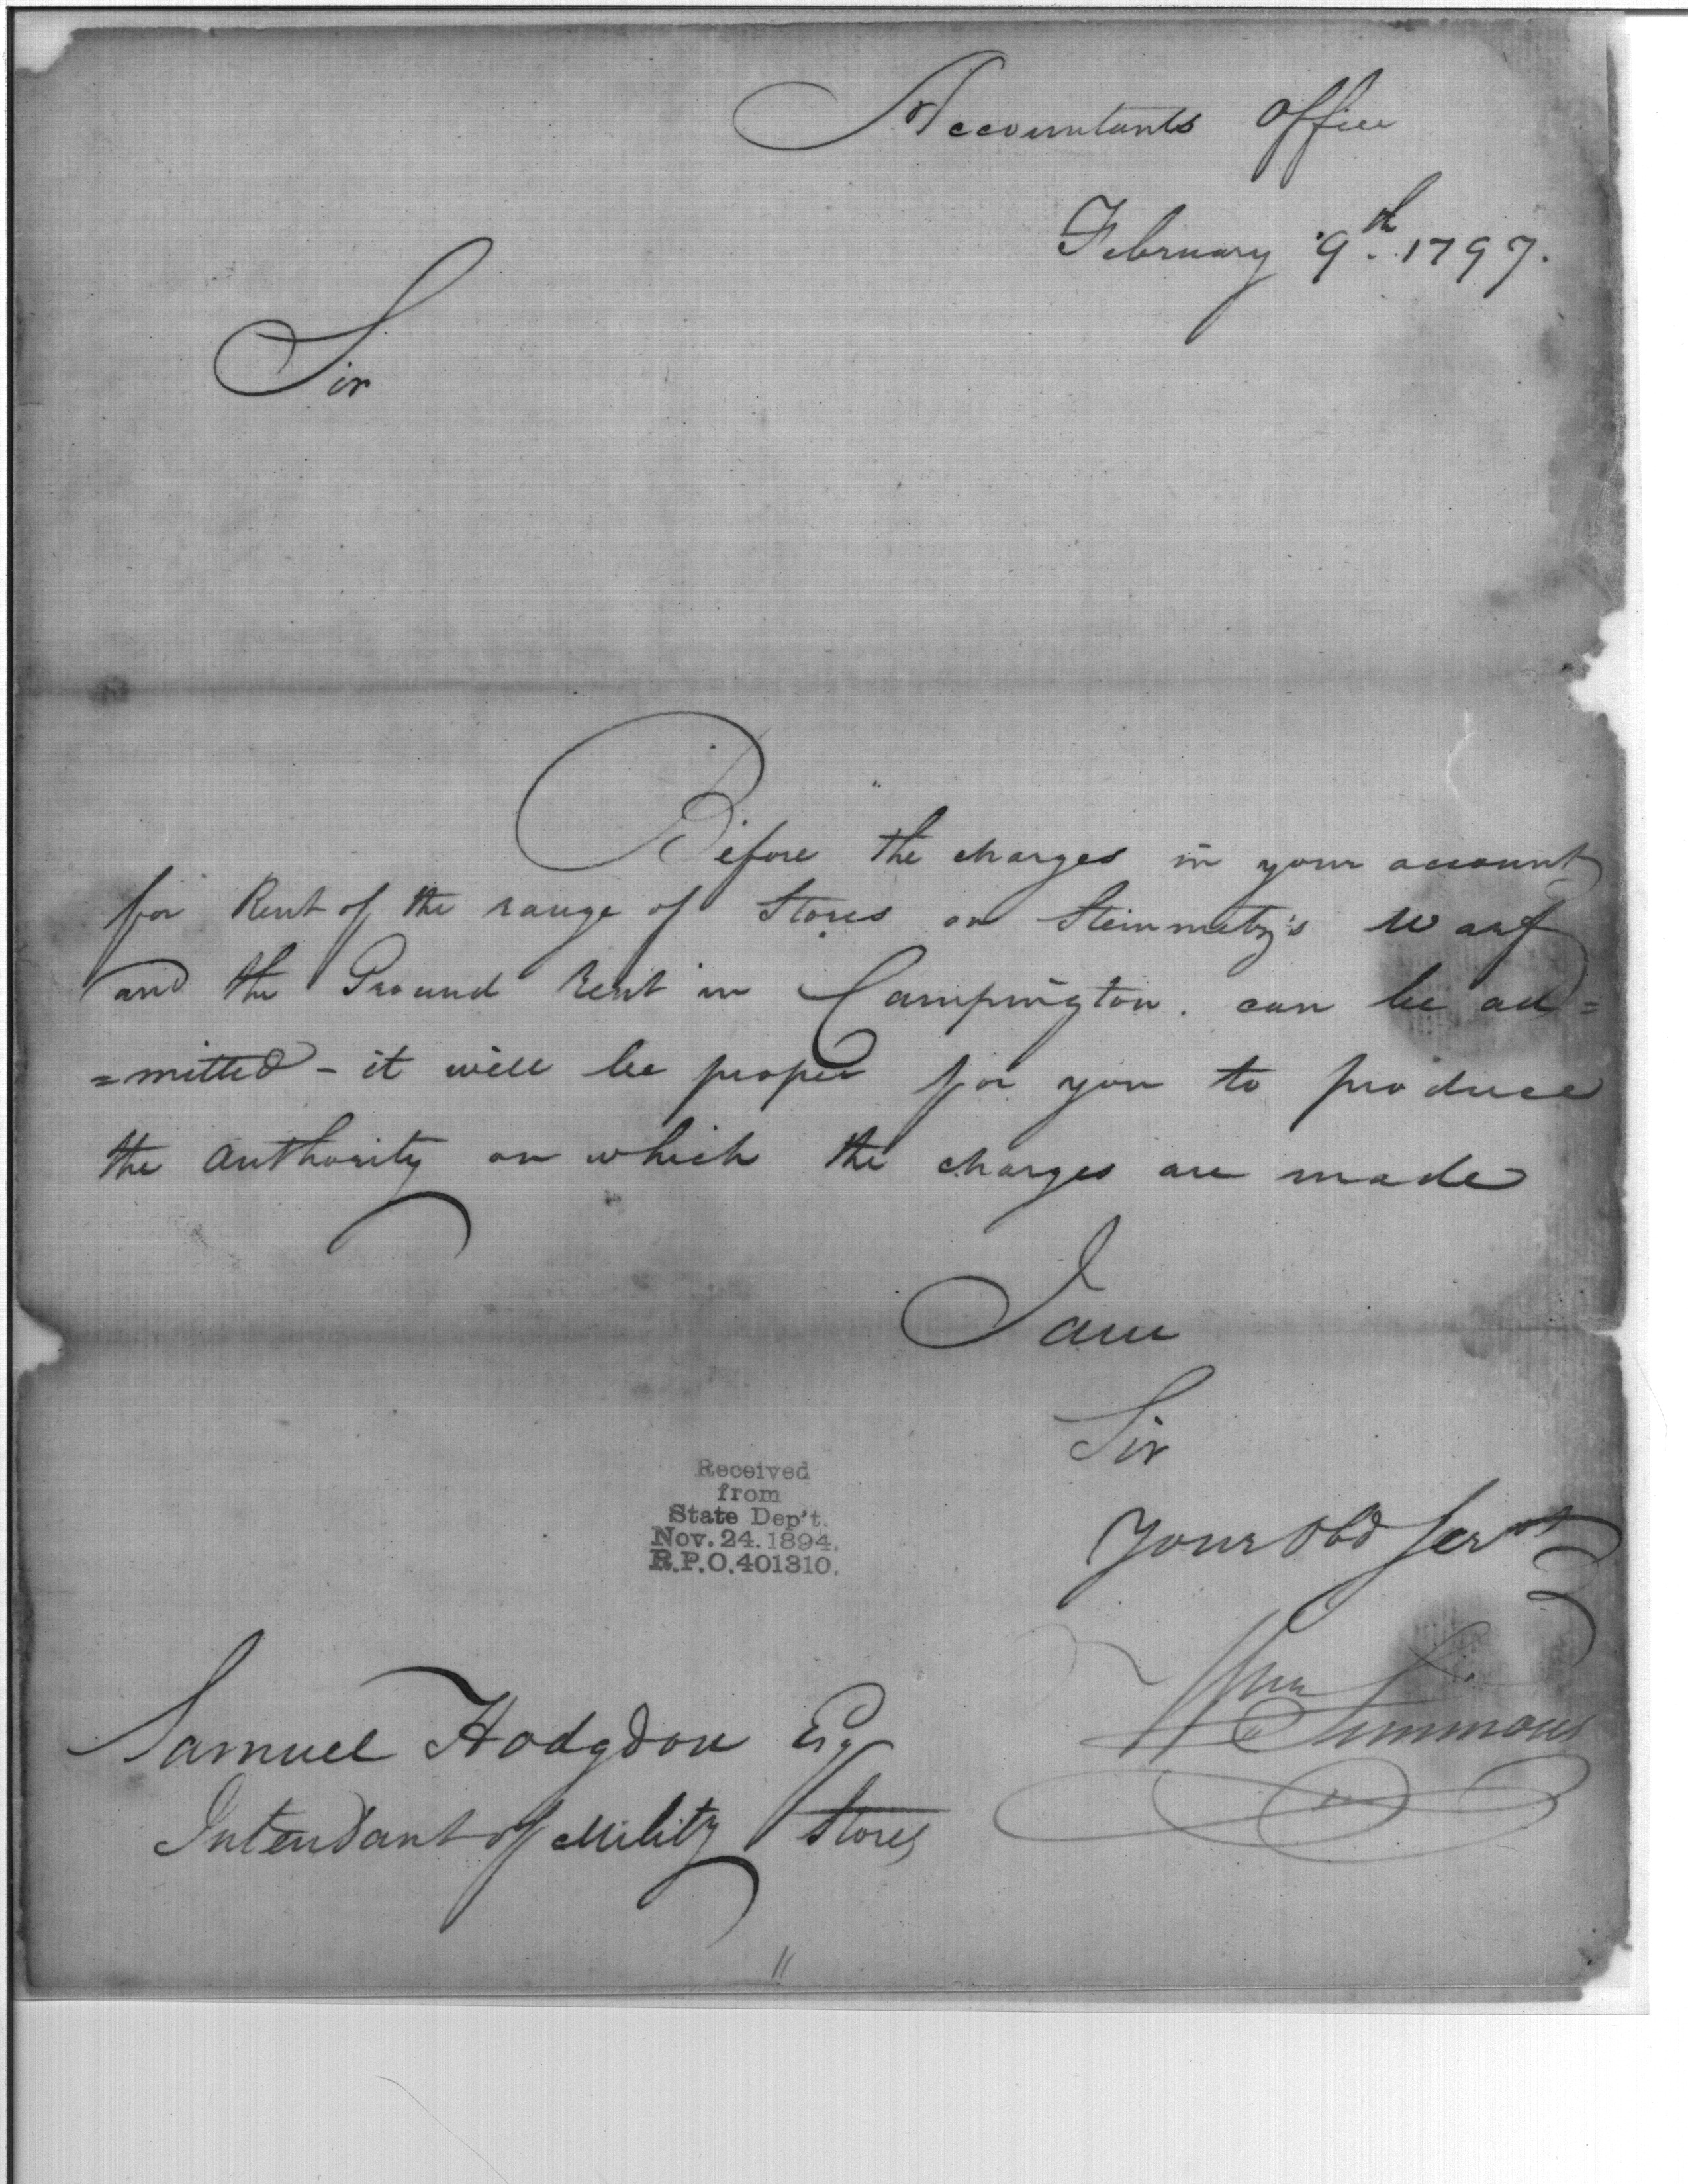 Accountants Office
February 9th. 1797.
Sir
Before the charges in your account
for Rent of the range of Stores on Steinmetz's Warf
and the Ground Rent in Campington. can be ad=
=mitted - it will be proper for you to produce
the authority on which the charges are made
I am
Sir
Your Obd Servt
Wm Simmons
Received
from
State Dep't.
Nov. 24. 1894.
R.P.O. 401310.
Samuel Hodgdon Esq
Intendant of Mility Stores